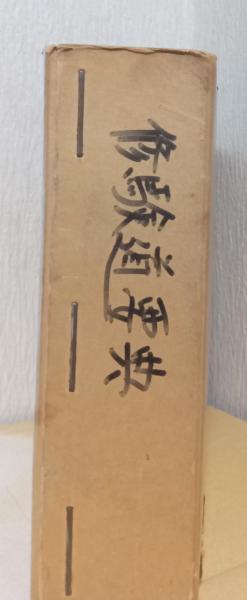 修験道事典